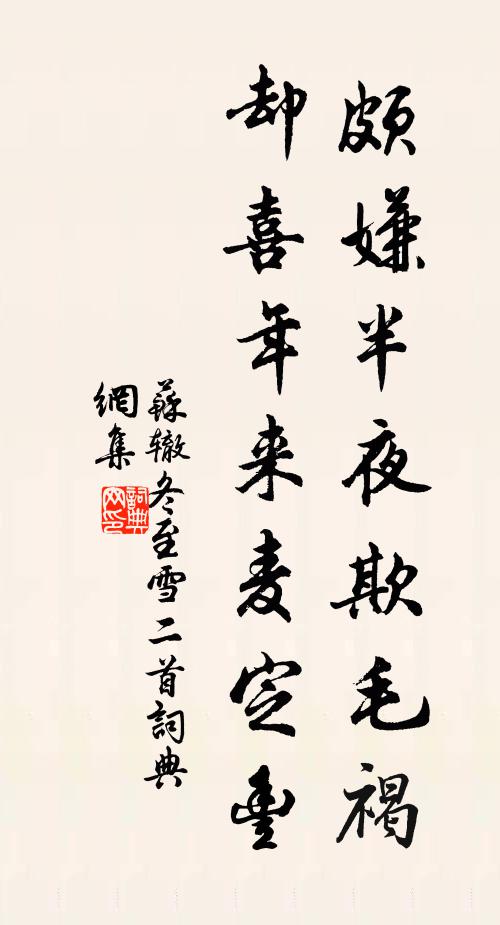 頗嫌半夜欺毛褐
却喜年来麦定豊
蘇辙冬至雪二首詞典
網集
詞典
网印